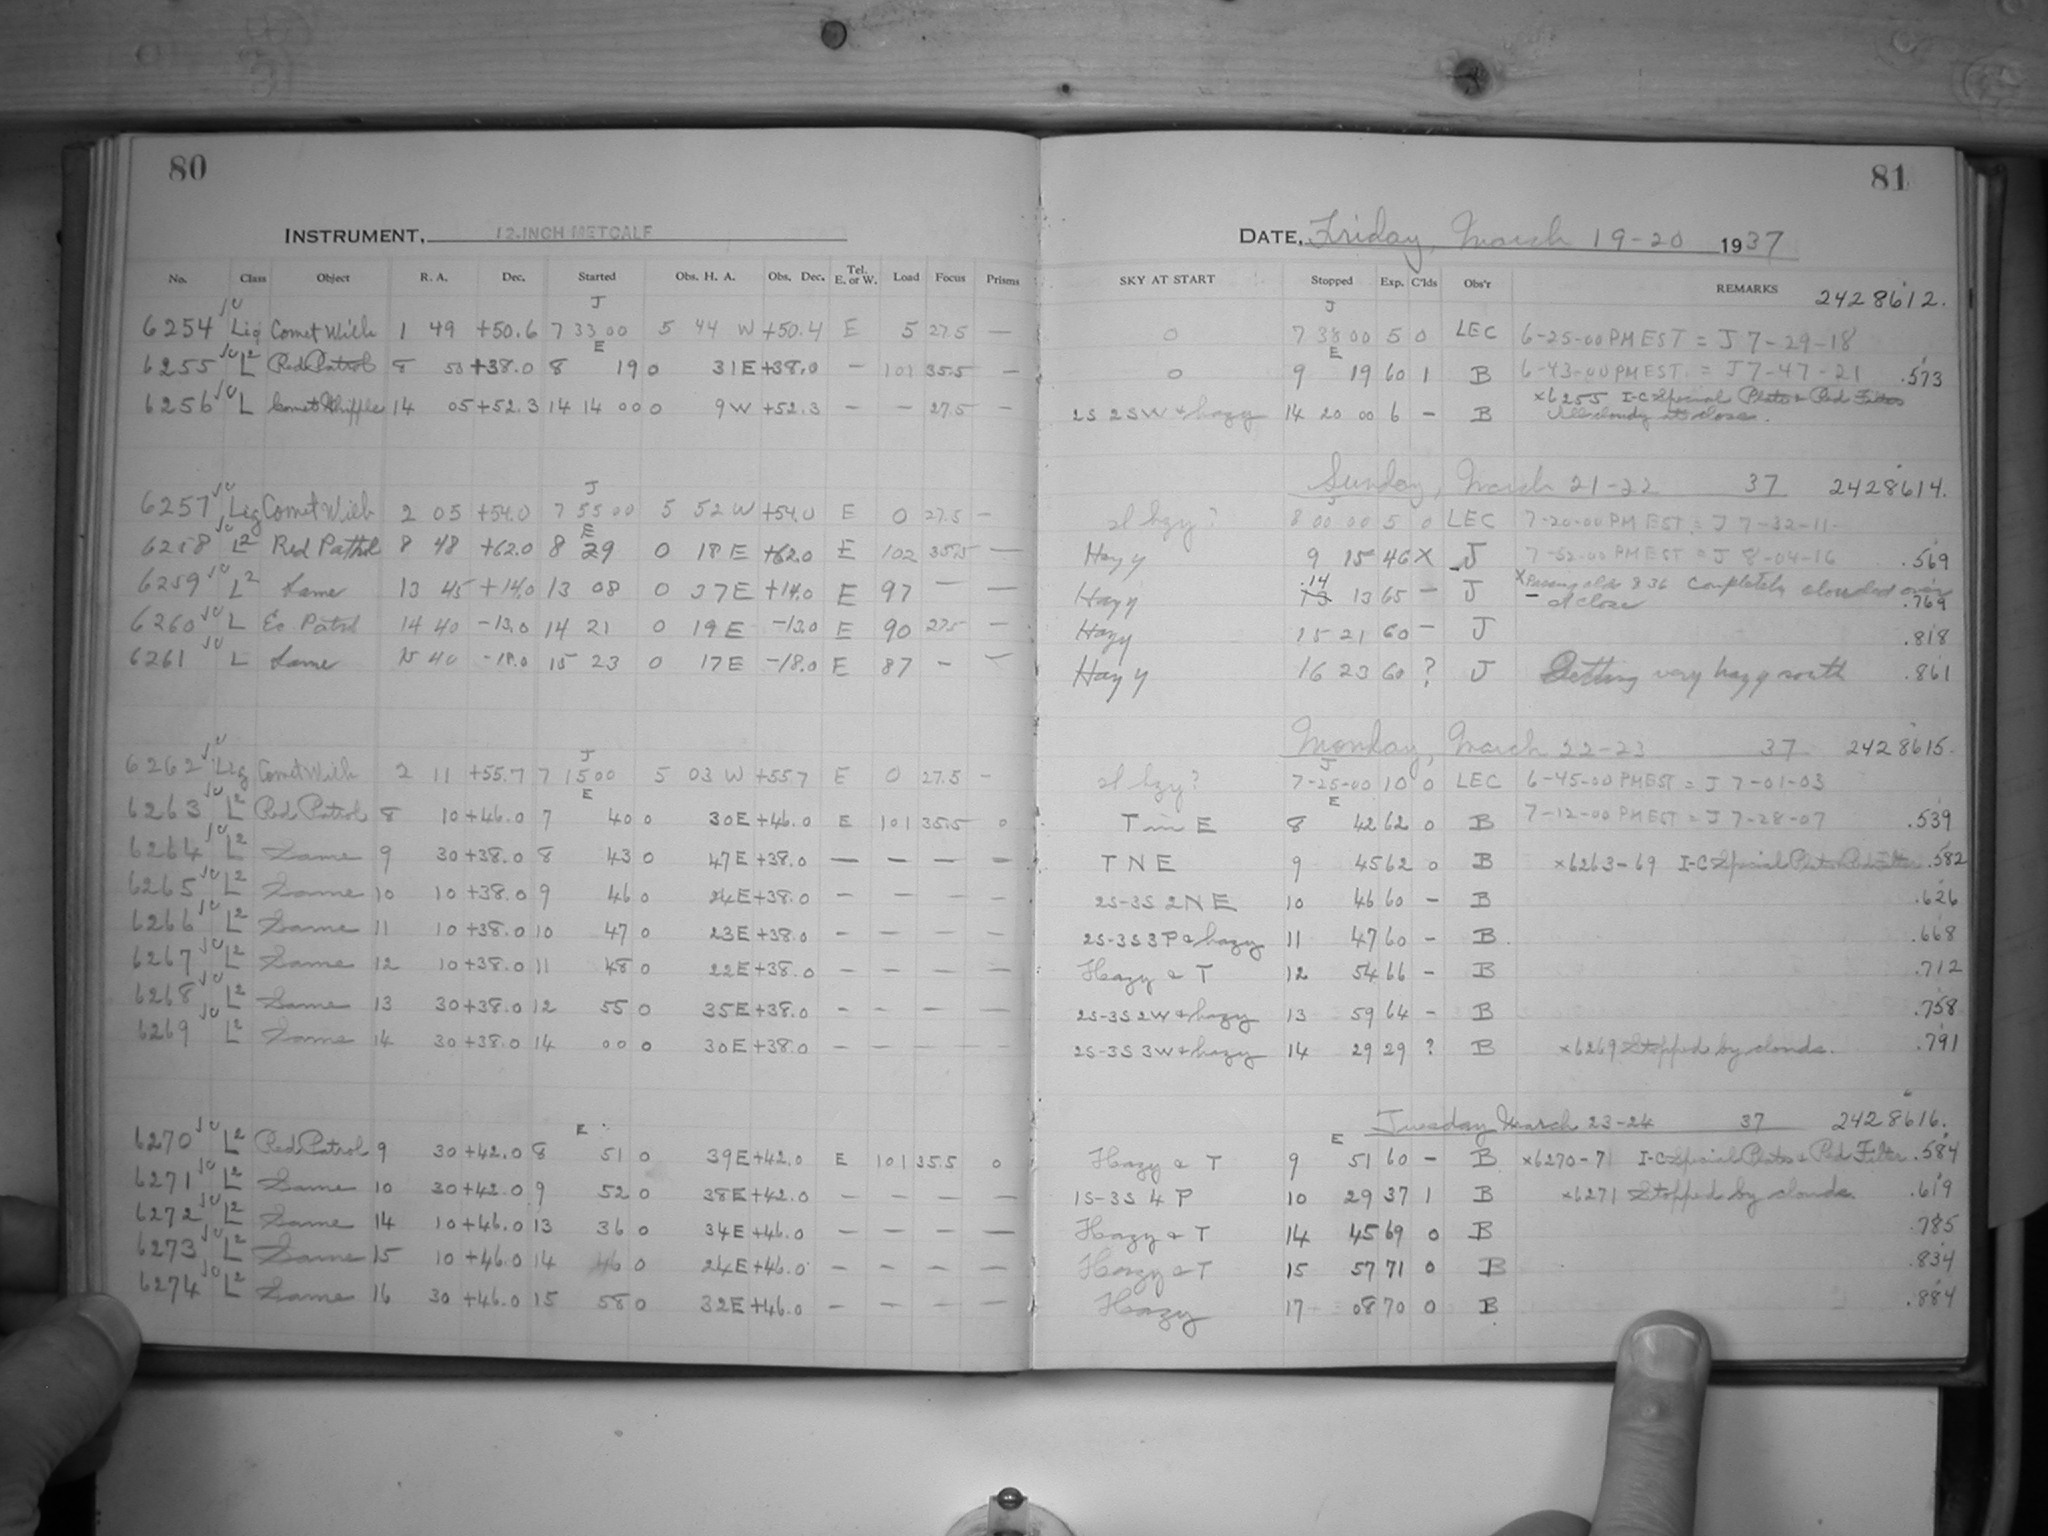 80
INSTRUMENT, 12-INCH METCALF
No. Class Object R. A. Dec. Started Obs. H. A. Obs. Dec. Tel. E. or W. Load Focus Prisms
J
6254 Lig Comet Wilk 1 49 +50.6 7 33 00 5 44 W +50.4 E 5 27.5 —
E
6255 L2 Red Patrol 8 50 +38.0 8 19 0 31E +38.0 — 101 35.5 —
6256 L Comet Whipple 14 05 +52.3 14 14 00 0 9W +52.3 — — 27.5 —
J
6257 Lig Comet Wilk 2 05 +54.0 7 55 00 5 52 W +54.0 E 0 27.5 —
E
6258 L2 Red Patrol 8 48 +62.0 8 29 0 18 E +62.0 E 102 35.5 —
6259 L2 Same 13 45 +14.0 13 08 0 37E +14.0 E 97 — —
6260 L Ec Patrol 14 40 -13.0 14 21 0 19 E -13.0 E 90 27.5 —
6261 L Same 15 40 -18.0 15 23 0 17E -18.0 E 87 — —
J
6262 Lig Comet Wilk 2 11 +55.7 7 15 00 5 03 W +55.7 E 0 27.5 —
E
6263 L2 Red Patrol 8 10 +46.0 7 40 0 30E +46.0 E 101 35.5 0
6264 L2 Same 9 30 +38.0 8 43 0 47E +38.0 — — — —
6265 L2 Same 10 10 +38.0 9 46 0 24E +38.0 — — — —
6266 L2 Same 11 10 +38.0 10 47 0 23E +38.0 — — — —
6267 L2 Same 12 10 +38.0 11 48 0 22E +38.0 — — — —
6268 L2 Same 13 30 +38.0 12 55 0 35E +38.0 — — — —
6269 L2 Same 14 30 +38.0 14 00 0 30E +38.0 — — — —
E
6270 L2 Red Patrol 9 30 +42.0 8 51 0 39E +42.0 E 101 35.5 0
6271 L2 Same 10 30 +42.0 9 52 0 38E +42.0 — — — —
6272 L2 Same 14 10 +46.0 13 36 0 34E +46.0 — — — —
6273 L2 Same 15 10 +46.0 14 46 0 24E +46.0 — — — —
6274 L2 Same 16 30 +46.0 15 58 0 32E +46.0 — — — —
81
DATE, Friday, March 19-20 1937
SKY AT START Stopped Exp. C'lds Obs'r REMARKS 2428612.
J
0 7 38 00 5 0 LEC 6-25-00 PM EST = J 7-29-18
E
0 9 19 60 1 B 6-43-00 PM EST. = J 7-47-21 .573
x6255 I-C Special Plate & Red Filter
2S 2SW & hazy 14 20 00 6 — B All cloudy at close.
Sunday, March 21-22 37 2428614.
J
sl hzy? 8 00 00 5 0 LEC 7-20-00 PM EST = J 7-32-11
Hazy 9 15 46 X J 7-52-00 PM EST = J 8-04-16 .569
Hazy 14 13 65 — J X Passing clds 8 36 Completely clouded over
— at close .769
Hazy 15 21 60 — J .818
Hazy 16 23 60 ? J Getting very hazy south .861
Monday, March 22-23 37 2428615.
J
sl hzy? 7-25-00 10 0 LEC 6-45-00 PM EST = J 7-01-03
E
T in E 8 42 62 0 B 7-12-00 PM EST = J 7-28-07 .539
T N E 9 45 62 0 B x6263-69 I-C Special Plate Red Filter .582
2S-3S 2N E 10 46 60 — B .626
2S-3S 3P & hazy 11 47 60 — B .668
Hazy & T 12 54 66 — B .712
2S-3S 2W & hazy 13 59 64 — B .758
2S-3S 3W & hazy 14 29 29 ? B x6269 Stopped by clouds. .791
Tuesday March 23-24 37 2428616.
E
Hazy & T 9 51 60 — B x6270-71 I-C Special Plates & Red Filter .584
1S-3S 4 P 10 29 37 1 B x6271 Stopped by clouds. .619
Hazy & T 14 45 69 0 B .785
Hazy & T 15 57 71 0 B .834
Hazy 17 08 70 0 B .884